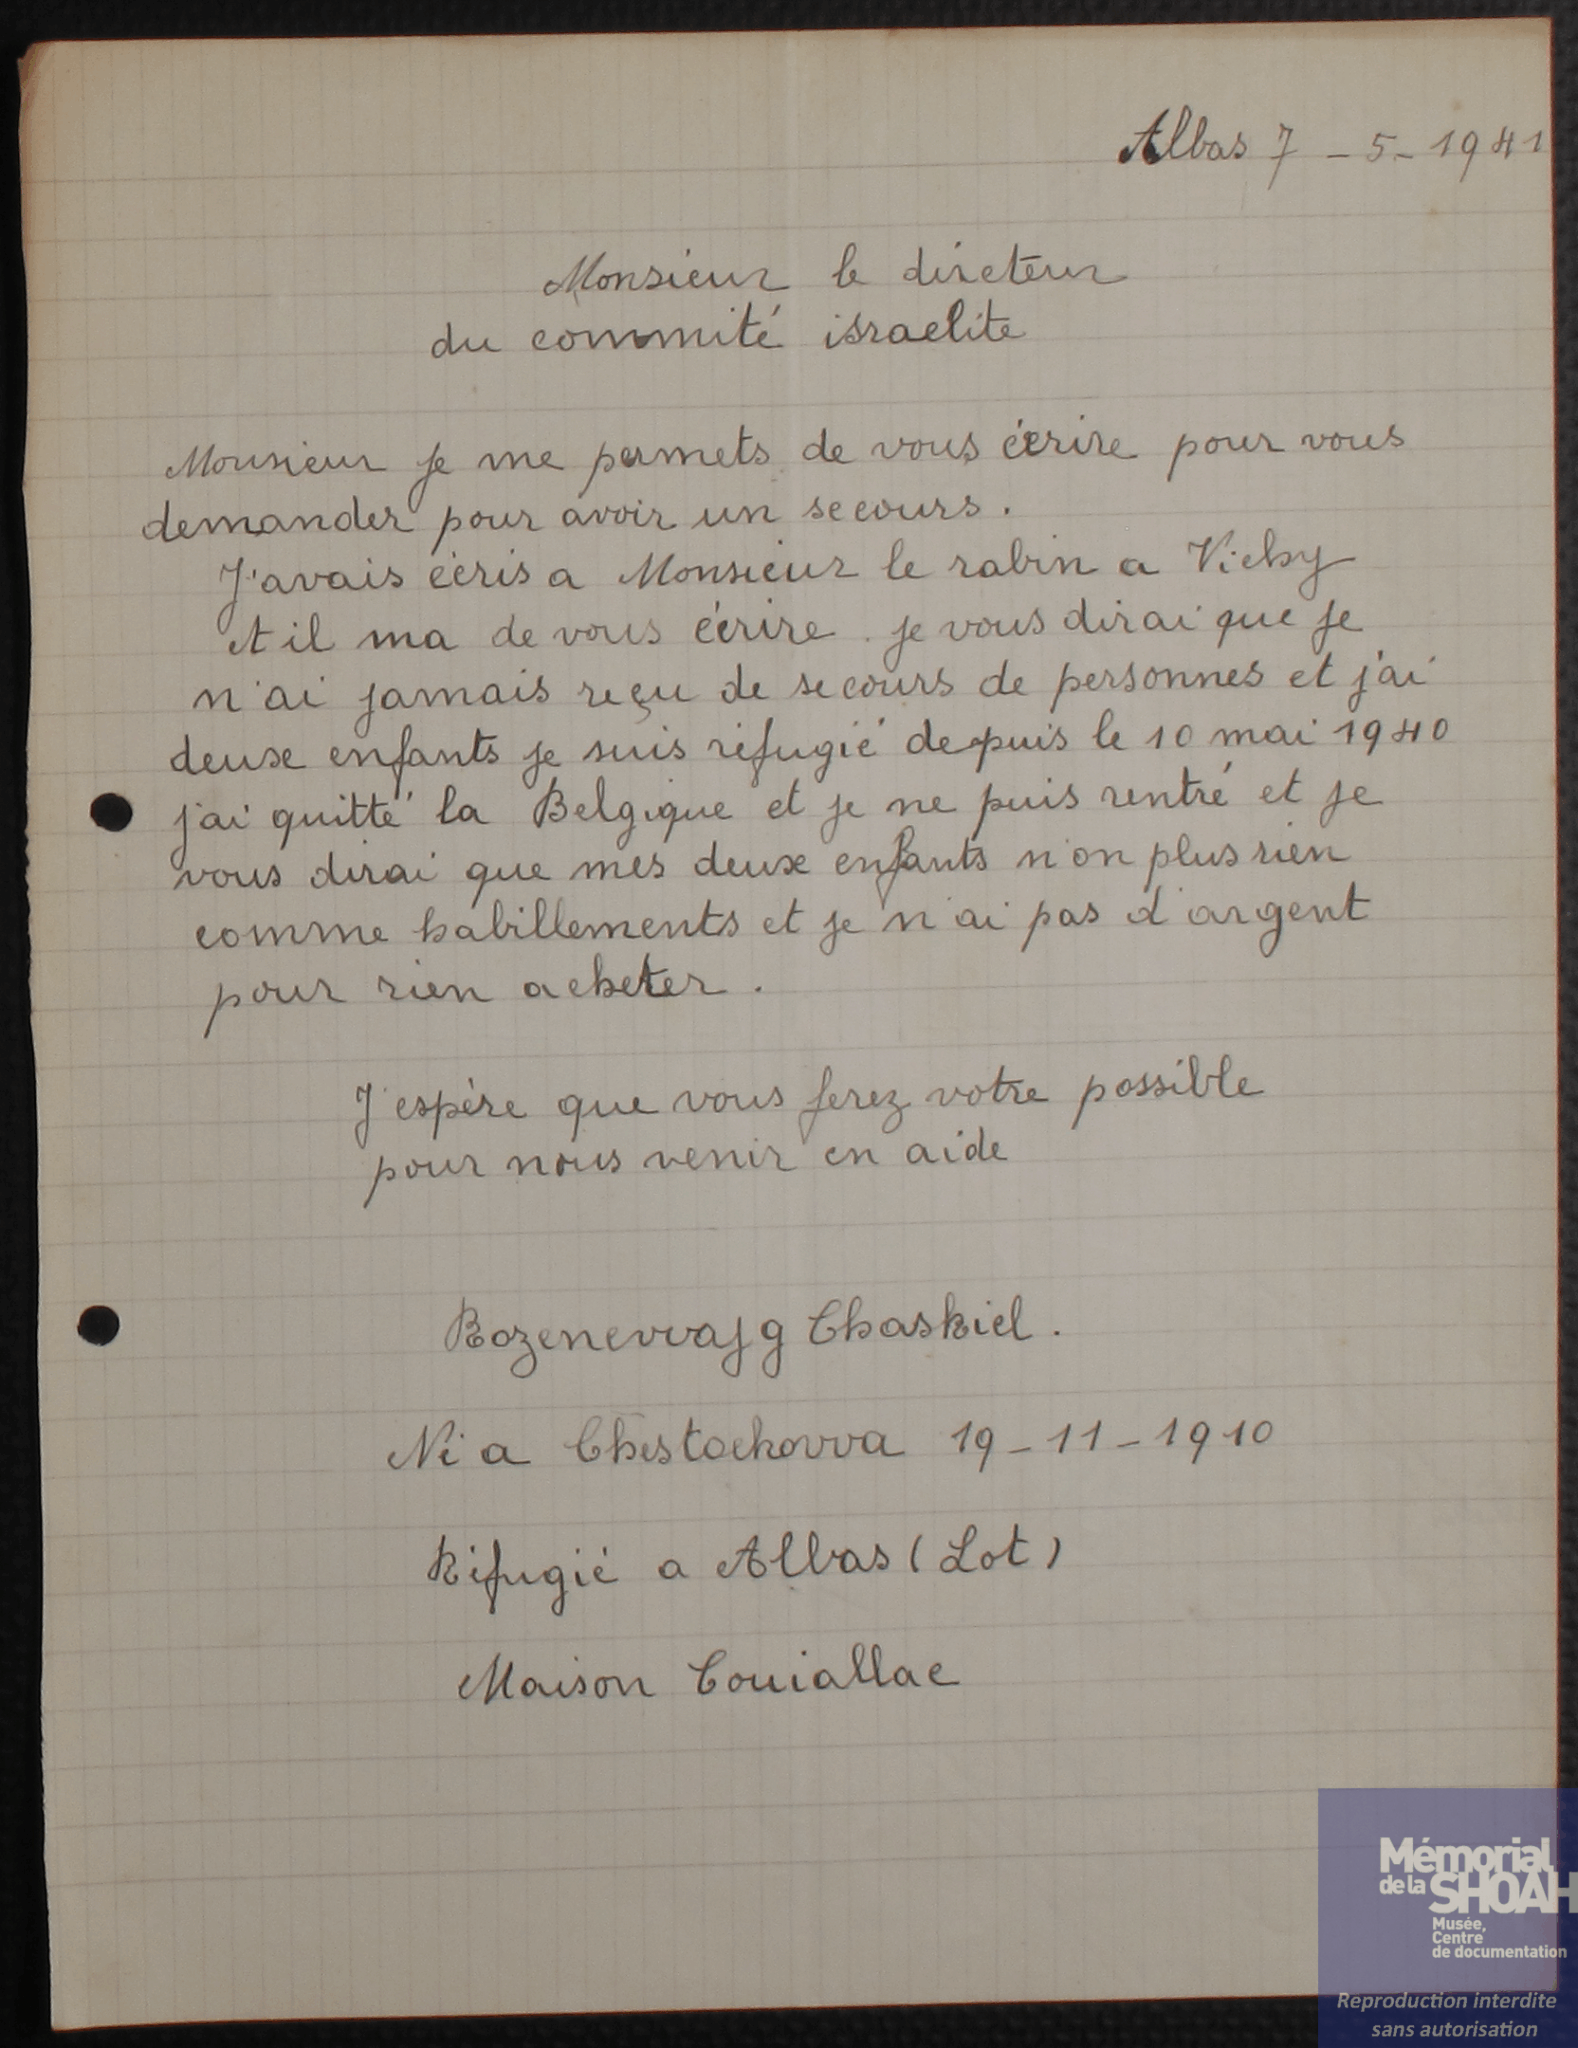 Albas 7 - 5 - 1941
Monsieur le directeur
du commité israelite
Monsieur je me permets de vous écrire pour vous
demander pour avoir un secours.
J'avais écris a Monsieur le rabin a Vichy
et il ma de vous écrire. je vous dirai que je
n'ai jamais reçu de secours de personnes et j'ai
deuse enfants je suis réfugié depuis le 10 mai 1940
j'ai quitté la Belgique et je ne puis rentré et je
vous dirai que mes deuse enfants n'on plus rien
comme habillements et je n'ai pas d'argent
pour rien acheter.
J'espère que vous ferez votre possible
pour nous venir en aide
Rozenevvajg Chaskiel.
Né a Chestochovva 19 - 11 - 1910
Réfugié a Albas (Lot)
Maison Couiallac
Mémorial
de la SHOAH
Musée,
Centre
de documentation
Reproduction interdite
sans autorisation